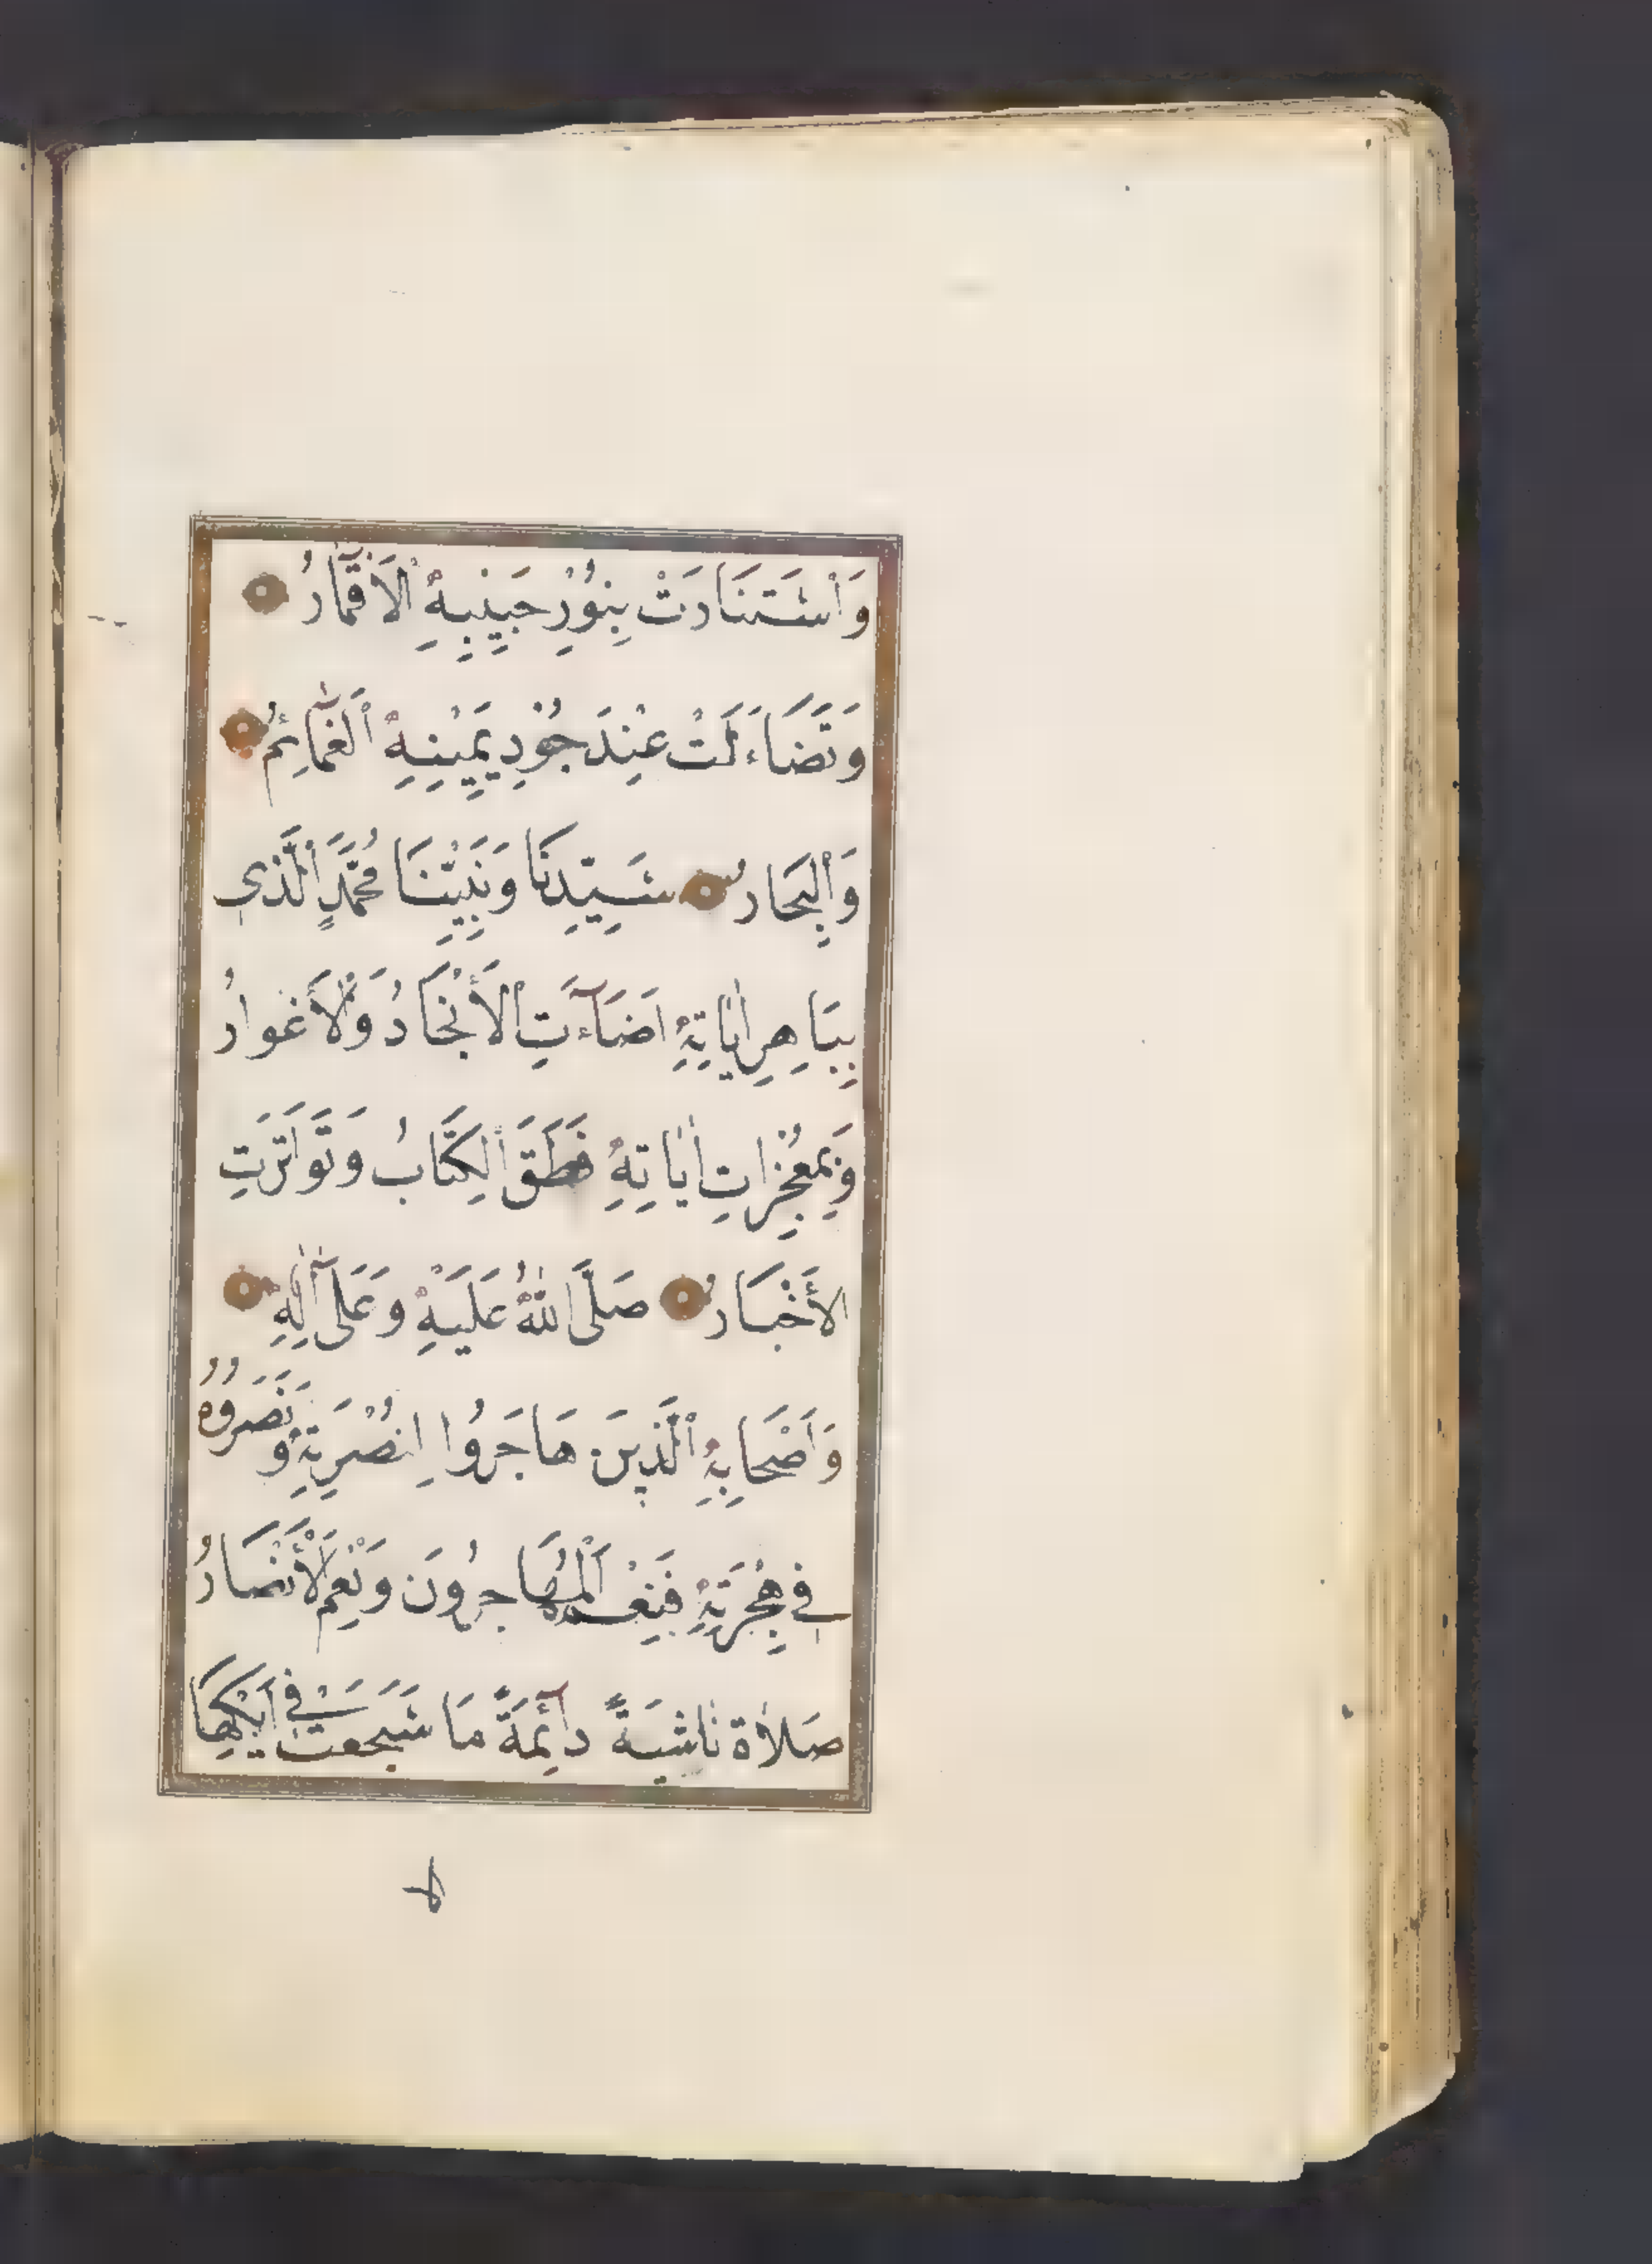 وَاسْتَنَارَتْ بِنُورِ جَبِينِهِ الْاَقْمَارُ
وَتَضَاءَلَتْ عِنْدَ جُودِ يَمِينِهِ الْغَمَائِمُ
وَالْبِحَارُ سَيِّدِنَا وَنَبِيِّنَا مُحَمَّدٍ الَّذِي
بِبَاهِرِ اٰيَاتِهِ اَضَاءَتِ الْأَنْجَادُ وَالْأَغْوَارُ
وَبِمُعْجِزَاتِ اٰيَاتِهِ نَطَقَ الْكِتَابُ وَتَوَاتَرَتِ
الأَخْبَارُ صَلَّى اللهُ عَلَيْهِ وَعَلَى اٰلِهِ
وَاَصْحَابِهِ الَّذِينَ هَاجَرُوا لِنُصْرَتِهِ وَنَصَرُوهُ
فِي هِجْرَتِهِ فَنِعْمَ الْمُهَاجِرُونَ وَنِعْمَ الْأَنْصَارُ
صَلَاةً نَاشِيَةً دَائِمَةً مَا سَجَعَتْ فِي اَيْكِهَا